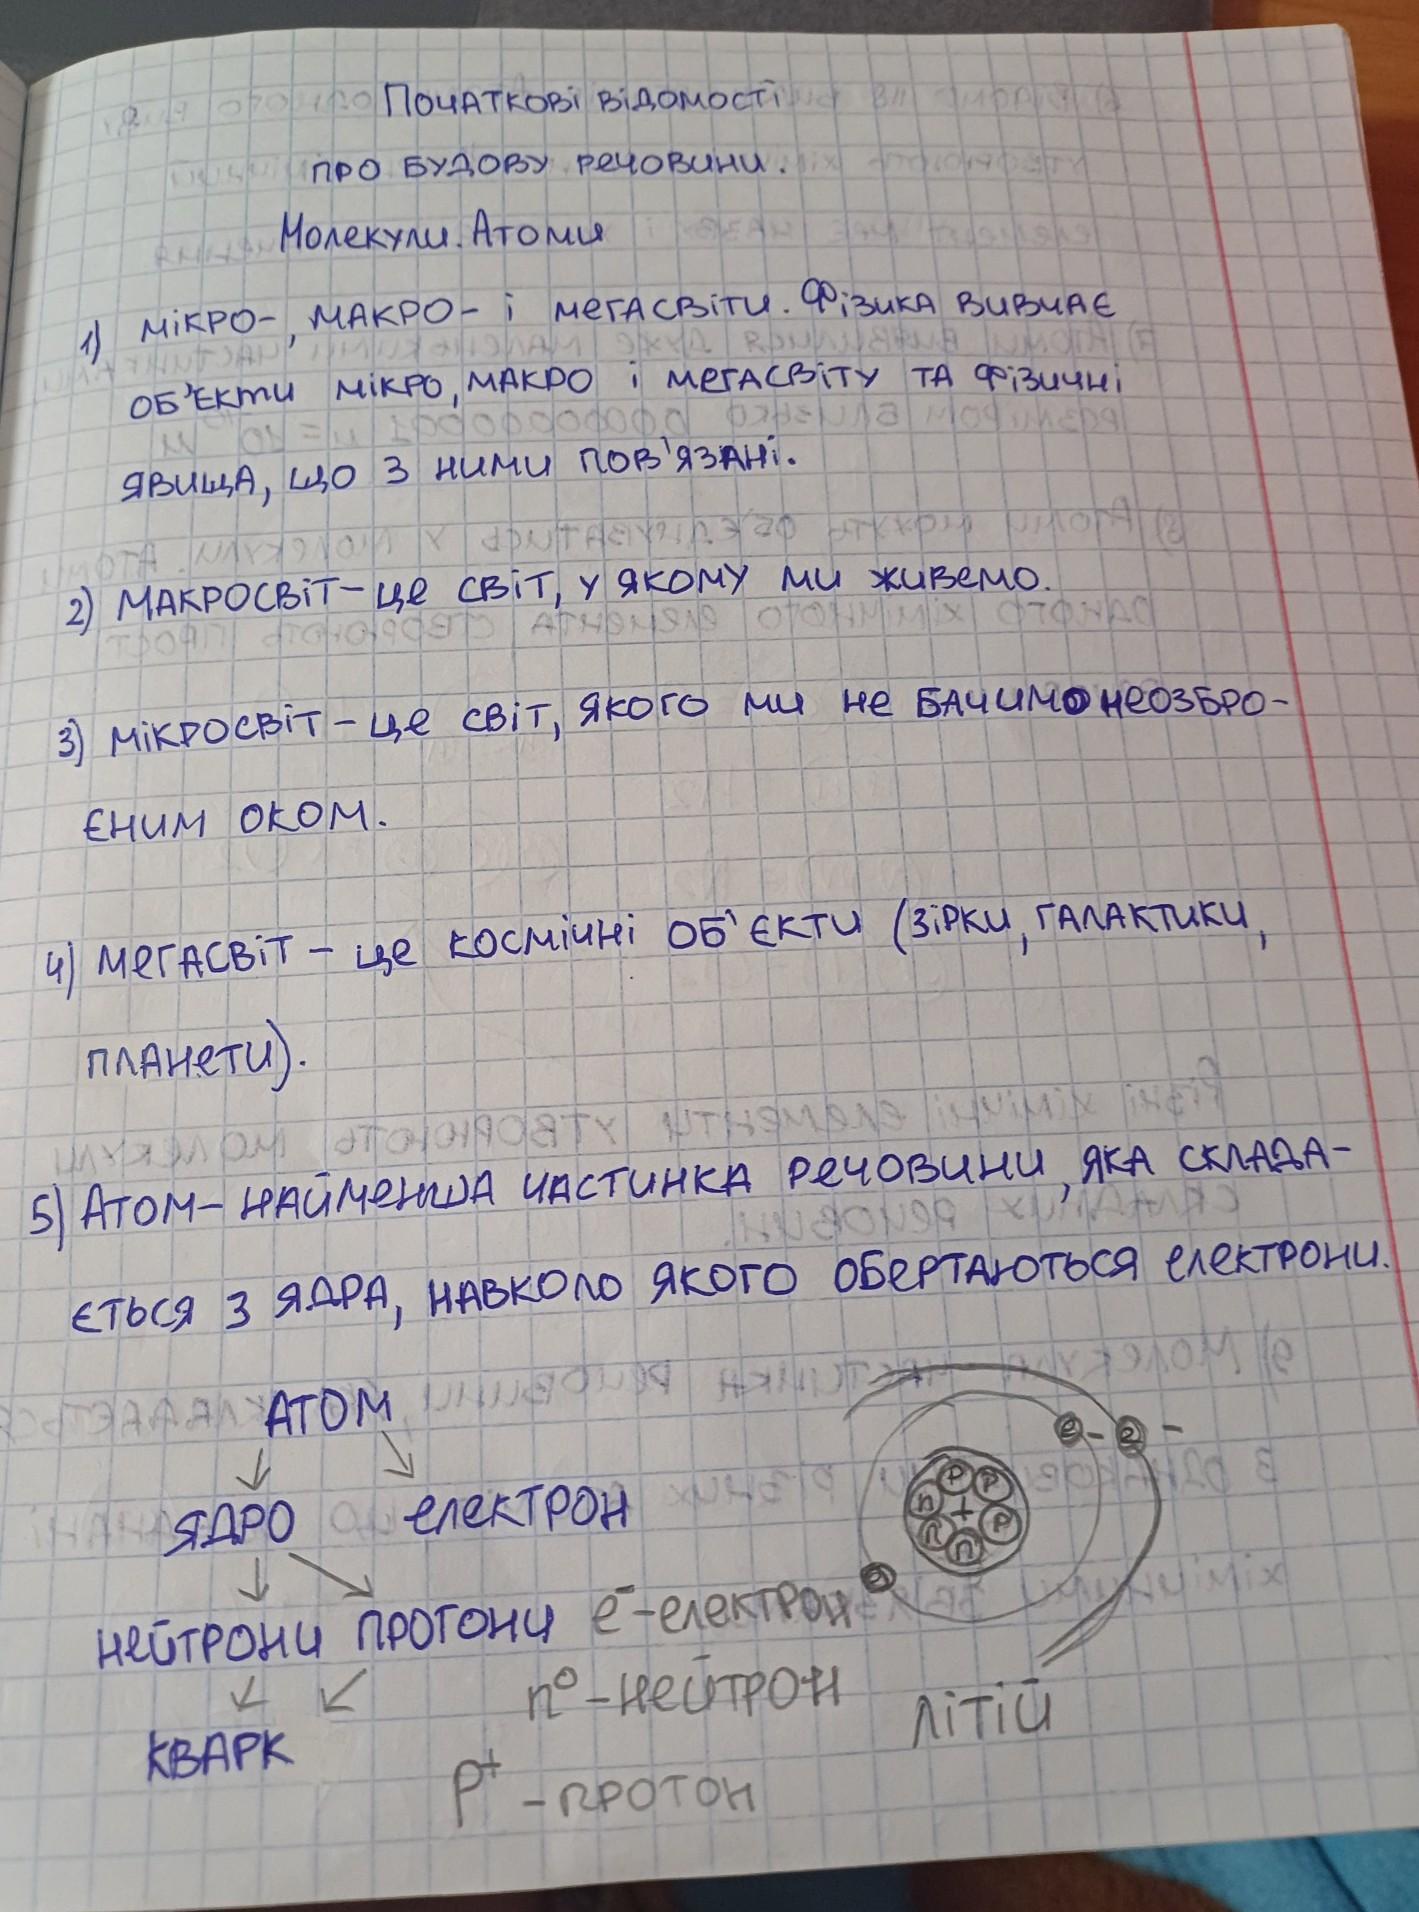 Початкові відомості
про будову речовини.
Молекули. Атоми
1) мікро-, макро- і мегасвіти. Фізика вивчає
об'єкти мікро, макро і мегасвіту та фізичні
явища, що з ними пов'язані.
2) Макросвіт - це світ, у якому ми живемо.
3) мікросвіт - це світ, якого ми не бачимо неозбро-
єним оком.
4) мегасвіт - це космічні об'єкти (зірки, галактики,
планети).
5) Атом - найменша частинка речовини, яка склада-
ється з ядра, навколо якого обертаються електрони.
Атом
ядро електрон
нейтрони протони
кварк
e⁻ - електрон
n⁰ - нейтрон
p⁺ - протон
e - e -
p p
n + p
n n
e
літій